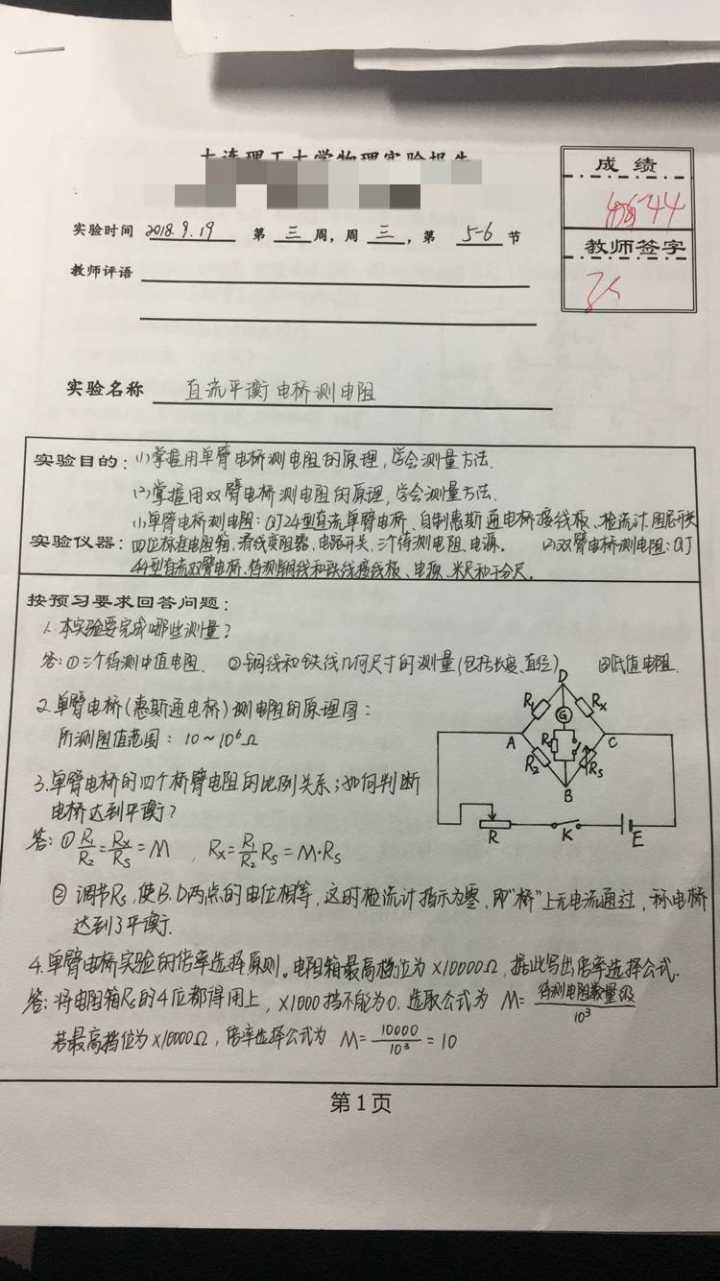 大连理工大学物理实验报告
成绩
44
教师签字
实验时间 2018.9.19 第 三 周,周 三 ,第 5-6 节
教师评语
实验名称 直流平衡电桥测电阻
实验目的:(1)掌握用单臂电桥测电阻的原理,学会测量方法.
(2)掌握用双臂电桥测电阻的原理,学会测量方法.
(1)单臂电桥测电阻:QJ24型直流单臂电桥、自制惠斯通电桥接线板、检流计、阻尼开关
实验仪器:四位标准电阻箱、滑线变阻器、电路开关、三个待测电阻、电源。 (2)双臂电桥测电阻:QJ
44型直流双臂电桥、待测铜线和铁线接线板、电源、米尺和千分尺。
按预习要求回答问题:
1.本实验要完成哪些测量?
答:①三个待测中值电阻. ②铜线和铁线几何尺寸的测量(包括长度、直径) ③低值电阻.
2.单臂电桥(惠斯通电桥)测电阻的原理图:
所测阻值范围:10~10⁶Ω
D
R₁ G Rₓ
A C
R₂ Rₛ
B
R K E
3.单臂电桥的四个桥臂电阻的比例关系;如何判断
电桥达到平衡?
答:①R₁/R₂=Rₓ/Rₛ=M , Rₓ=R₁/R₂ Rₛ=M·Rₛ
② 调节Rₛ,使B、D两点的电位相等,这时检流计指示为零,即"桥"上无电流通过,称电桥
达到了平衡.
4.单臂电桥实验的倍率选择原则。电阻箱最高档位为×10000Ω,据此写出倍率选择公式.
答:将电阻箱Rₛ的4位都得用上,×1000挡不能为0.选取公式为 M=待测电阻数量级/10³
若最高档位为×10000Ω,倍率选择公式为 M=10000/10³=10
第1页